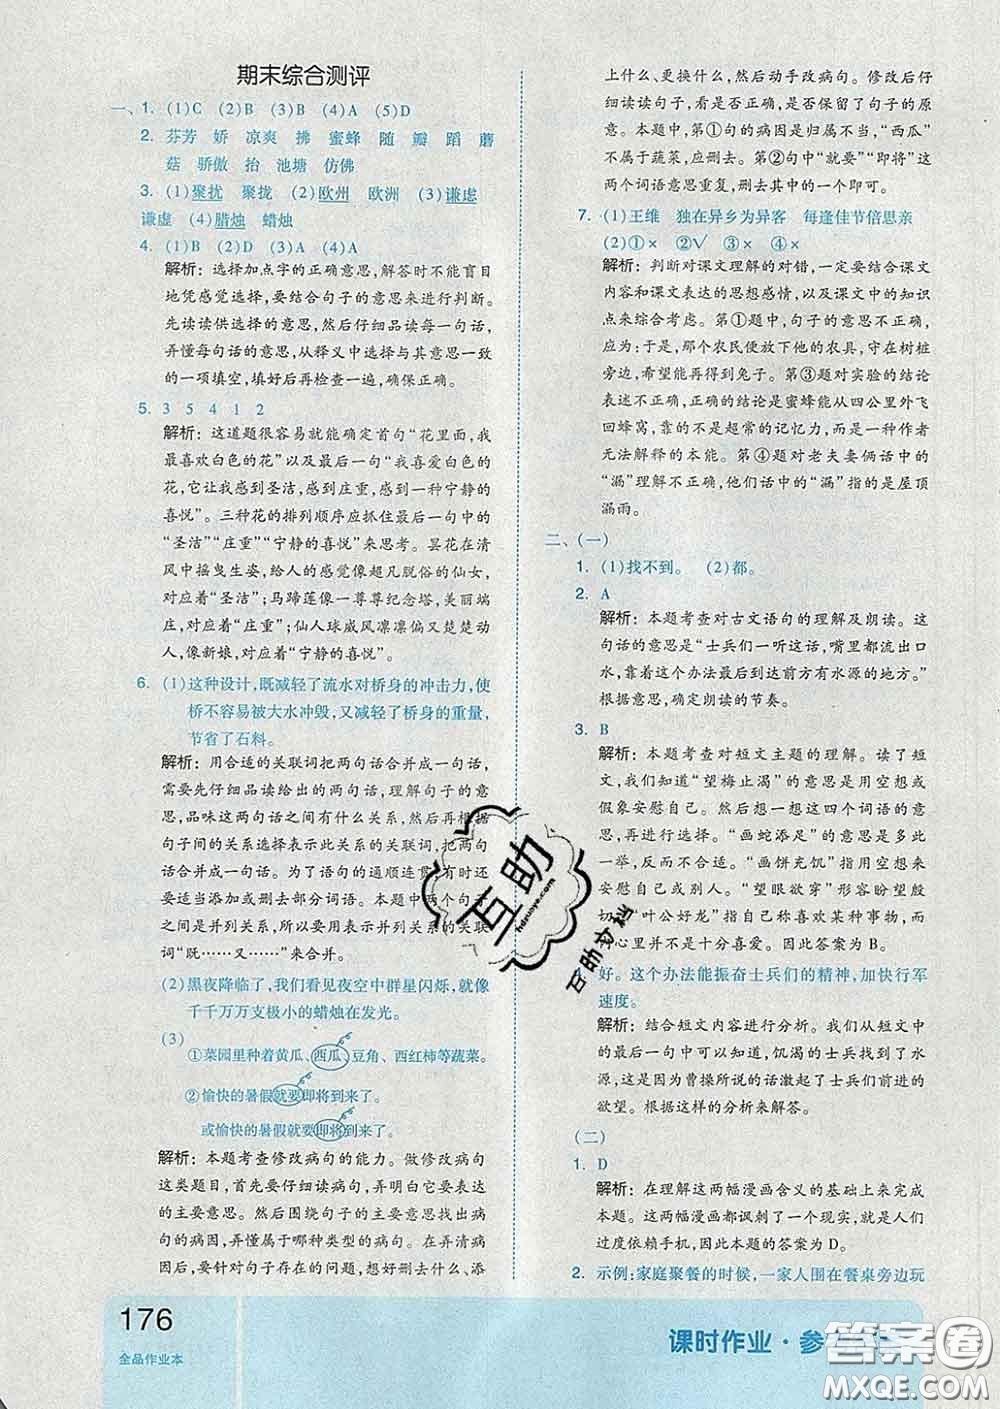 期末综合测评
一、1. (1)C (2)B (3)B (4)A (5)D
2. 芬芳 娇 凉爽 拂 蜜蜂 随 瓣 蹈 蘑
菇 骄傲 抬 池塘 仿佛
3. (1)聚扰 聚拢 (2)欧州 欧洲 (3)谦虑
谦虚 (4)腊烛 蜡烛
4. (1)B (2)D (3)A (4)A
解析：选择加点字的正确意思，解答时不能盲目
地凭感觉选择，要结合句子的意思来进行判断。
先读读供选择的意思，然后仔细品读每一句话，
弄懂每句话的意思，从释义中选择与意思一致
的一项填空，填好后再检查一遍，确保正确。
5. 3 5 4 1 2
解析：这道题很容易就能确定首句“花里面，我
最喜欢白色的花”以及最后一句“我喜爱白色的
花，它让我感到圣洁，感到庄重，感到一种宁静的
喜悦”。三种花的排列顺序应抓住最后一句中的
“圣洁”“庄重”“宁静的喜悦”来思考。昙花在清
风中摇曳生姿，给人的感觉像超凡脱俗的仙女，
对应着“圣洁”；马蹄莲像一尊尊纪念塔，美丽端
庄，对应着“庄重”；仙人球威风凛凛偏又楚楚动
人，像新娘，对应着“宁静的喜悦”。
6. (1)这种设计，既减轻了流水对桥身的冲击力，使
桥不容易被大水冲毁，又减轻了桥身的重量，
节省了石料。
解析：用合适的关联词把两句话合并成一句话，
需要先仔细品读给出的两句话，理解句子的意
思，品味这两句话之间有什么关系，然后再根据
句子间的关系选择表示此关系的关联词，把两句
话合并成一句话。为了语句的通顺连贯，可以适
当增加或删去部分词语。本题中两个句子之间
是并列关系，所以要用表示并列关系的关联
词“既……又……”来合并。
(2)黑夜降临了，我们看见夜空中群星闪烁，就像
千千万万支极小的蜡烛在发光。
(3)
①菜园里种着黄瓜、西瓜、豆角、西红柿等蔬菜。
②愉快的暑假就要即将到来了。
或愉快的暑假就要即将到来了。
解析：本题考查修改病句的能力。做修改病句
这类题目，首先要仔细读病句，弄明白它要表达
的主要意思。然后围绕句子的主要意思找出病
句的病因，弄清属于哪种类型的病句。在弄清病
因后，要针对句子存在的问题，想好删什么、添
上什么、更换什么，然后动手改病句。修改后仔
细读读句子，看是否正确，是否保留了句子的原
意。本题中，第①句的病因是归属不当，“西瓜”
不属于蔬菜，应删去。第②句中“就要”“即将”这
两个词语意思重复，删去其中的一个即可。
7. (1)王维 独在异乡为异客 每逢佳节倍思亲
(2)①× ②√ ③× ④×
解析：判断对课文理解的对错，一定要结合课文
内容和课文表达的思想感情，以及课文中的知识
点来综合考虑。第①题中，句子的意思不正确，
应为：于是，那个农民便放下他的农具，守在树桩
旁边，希望能再得到兔子。第③题对实验的结论
表述不正确，正确的结论是蜜蜂能从四公里外飞
回蜂窝，靠的不是超常的记忆力，而是一种作者
无法解释的本能。第④题对老夫妻俩话中的
“漏”理解不正确，他们话中的“漏”指的是屋顶
漏雨。
二、(一)
1. (1)找不到。 (2)都。
2. A
解析：本题考查对古文语句的理解及朗读。这
句话的意思是“士兵们一听这话，嘴里都流出口
水，靠着这个办法最后到达前方有水源的地方”。
根据意思，确定朗读的节奏。
3. B
解析：本题考查对短文主题的理解。读了短
文，我们知道“望梅止渴”的意思是用空想或
假象安慰自己。然后想一想这四个词语的意思，
再进行选择。“画蛇添足”的意思是多此
一举，反而不合适。“画饼充饥”指用空想来
安慰自己或别人。“望眼欲穿”形容盼望殷
切。“叶公好龙”指自己称喜欢某种事物，而
心里并不是十分喜爱。因此答案为 B。
好。这个办法能振奋士兵们的精神，加快行军
速度。
解析：结合短文内容进行分析。我们从短文中
的最后一句可以知道，饥渴的士兵找到了水
源，这是因为曹操所说的话激起了士兵们前进的
欲望。根据这样的分析来解答。
(二)
1. D
解析：在理解这两幅漫画含义的基础上来完成
本题。这两幅漫画都讽刺了一个现实，就是人们
过度依赖手机，因此本题的答案为 D。
2. 示例：家庭聚餐的时候，一家人围在餐桌旁边玩
176
全品作业本
课时作业·参
互助
hdzuoye.com
答案圈
MXQE.COM